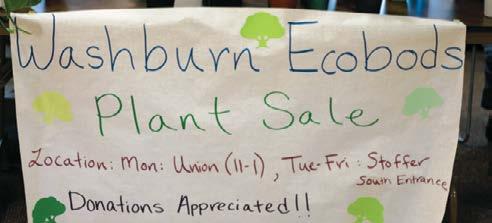 Washburn Ecobods
Plant Sale
Location: Mon: Union (11-1), Tue-Fri: Stoffer
South Entrance
Donations Appreciated!!